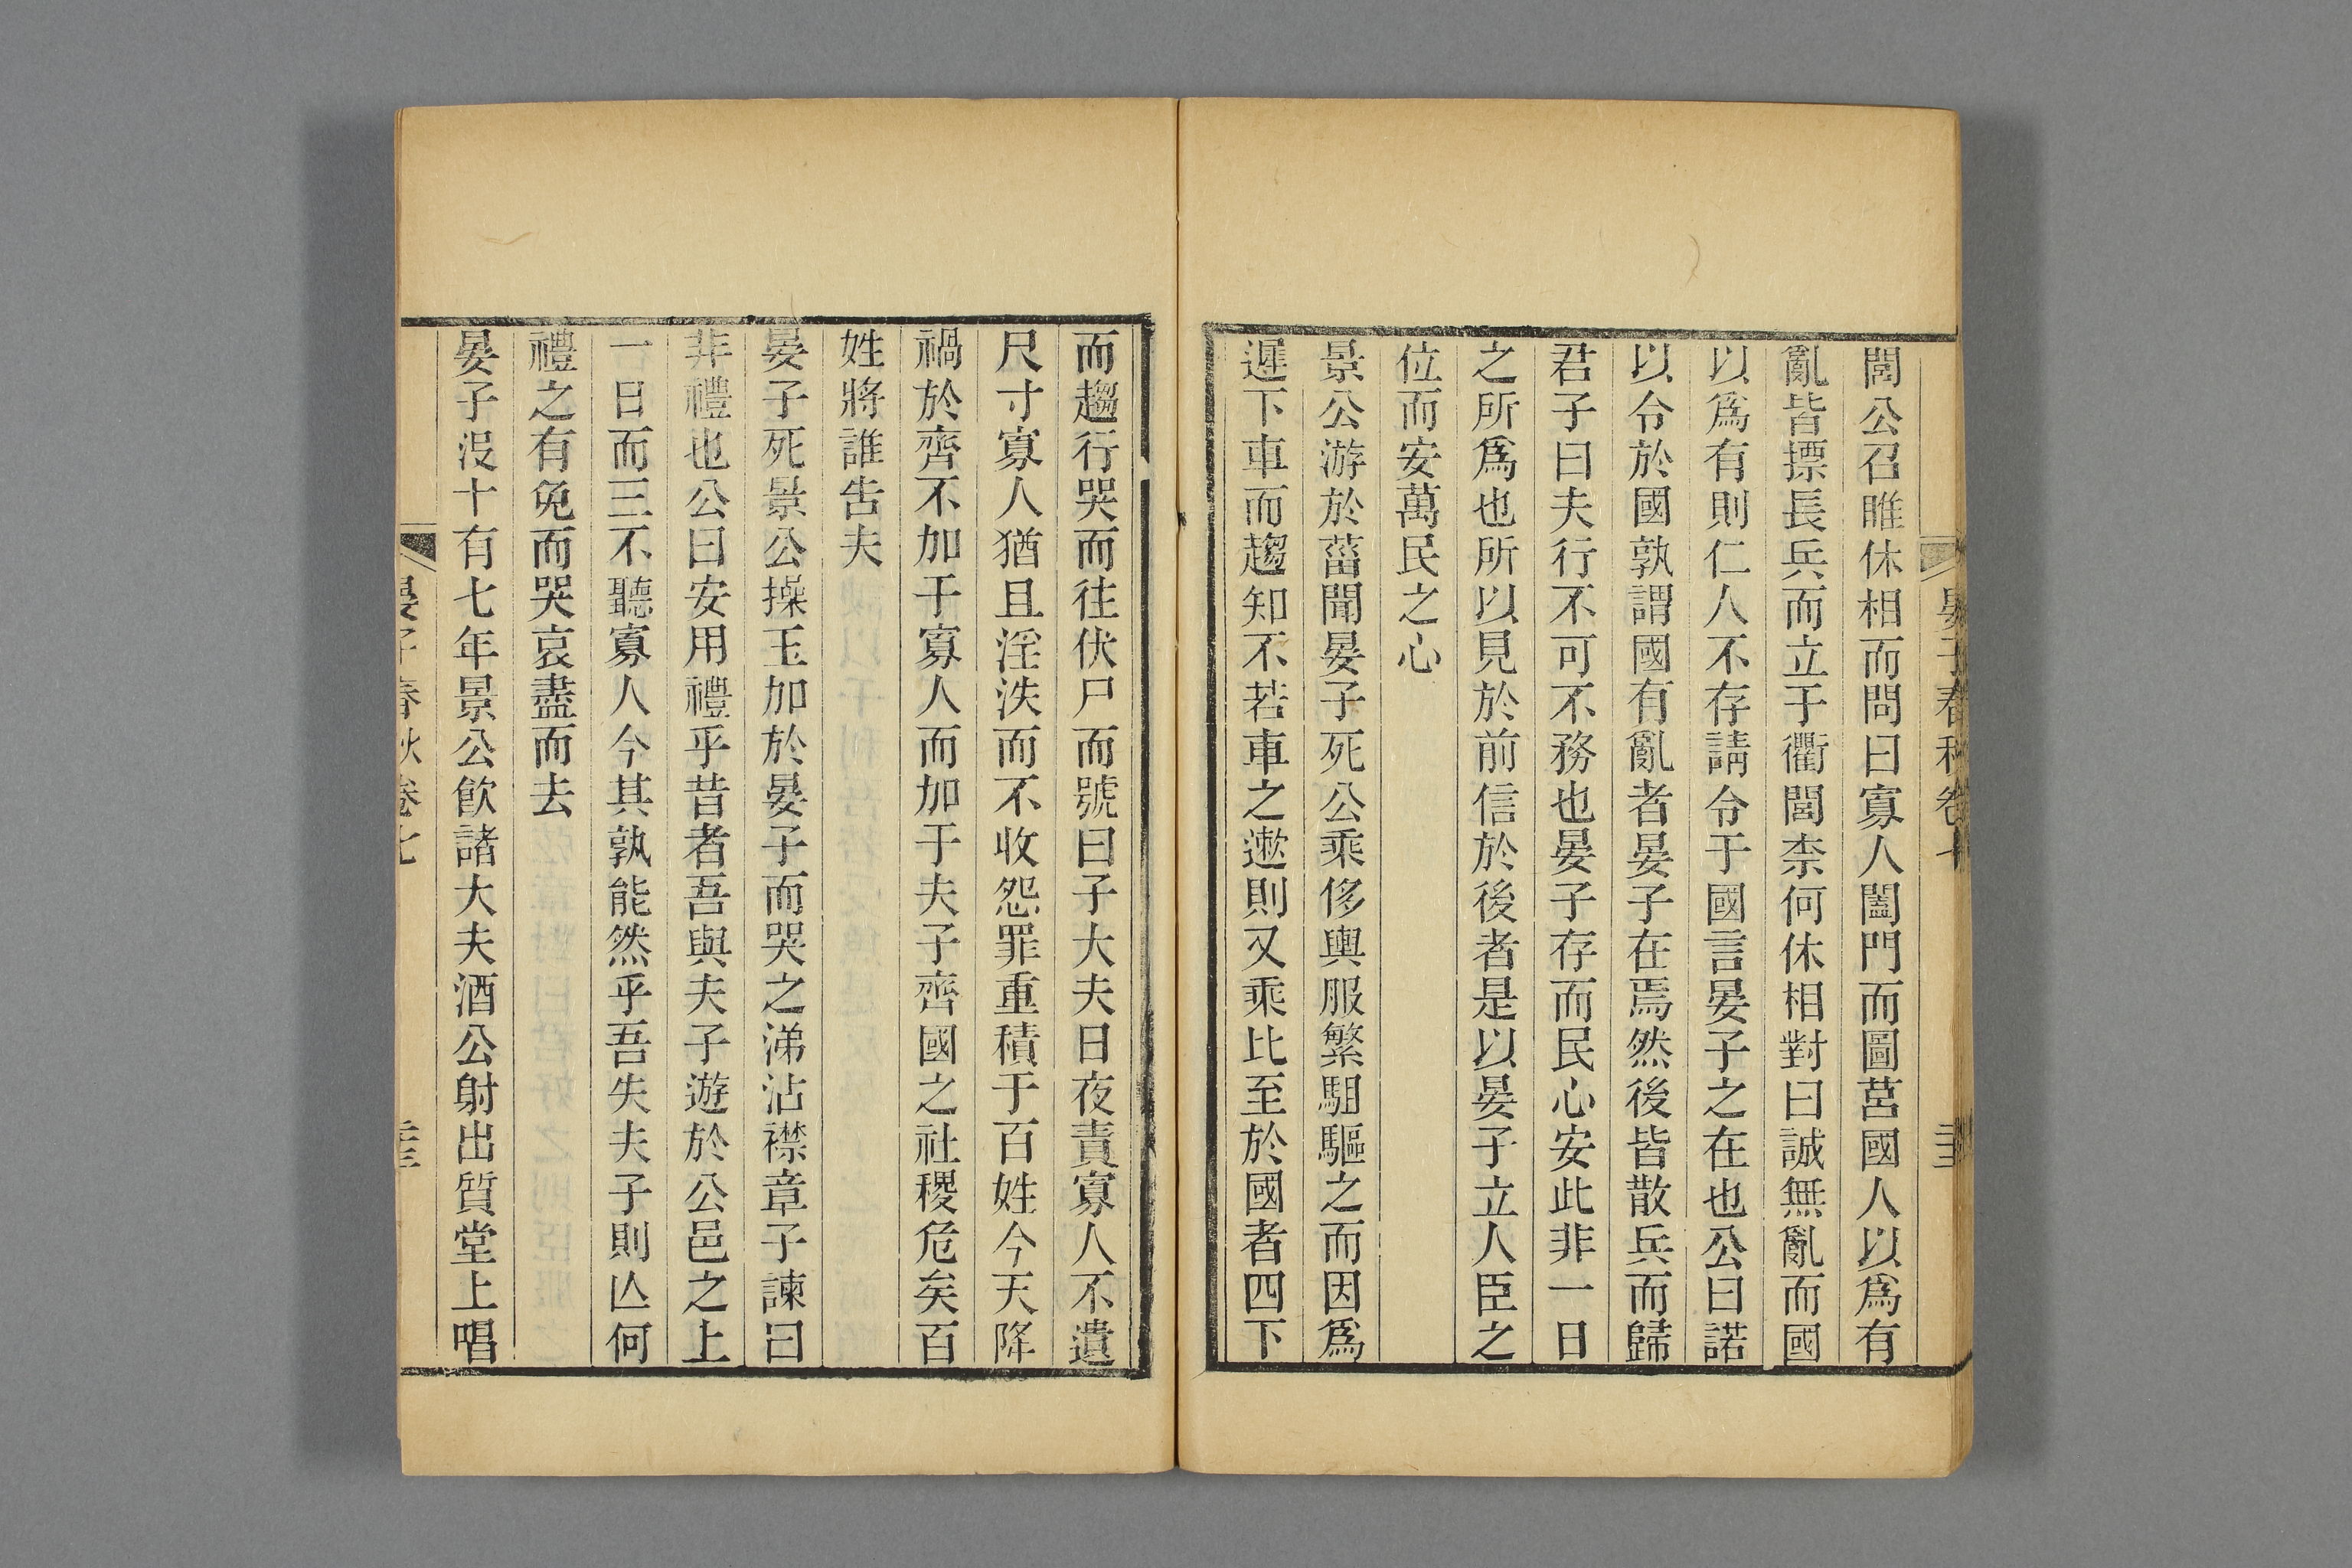 晏子春秋卷七
閭公召睢休相而問曰寡人闔門而圖莒國人以爲有
亂皆摽長兵而立于衢閭柰何休相對曰誠無亂而國
以爲有則仁人不存請令于國言晏子之在也公曰諾
以令於國孰謂國有亂者晏子在焉然後皆散兵而歸
君子曰夫行不可不務也晏子存而民心安此非一日
之所爲也所以見於前信於後者是以晏子立人臣之
位而安萬民之心
景公游於菑聞晏子死公乘侈輿服繁駔驅之而因爲
遲下車而趨知不若車之遬則又乘比至於國者四下
而趨行哭而往伏尸而號曰子大夫日夜責寡人不遺
尺寸寡人猶且淫泆而不收怨罪重積于百姓今天降
禍於齊不加于寡人而加于夫子齊國之社稷危矣百
姓將誰告夫
晏子死景公操玉加於晏子而哭之涕沾襟章子諫曰
非禮也公曰安用禮乎昔者吾與夫子遊於公邑之上
一日而三不聽寡人今其孰能然乎吾失夫子則亾何
禮之有免而哭哀盡而去
晏子沒十有七年景公飲諸大夫酒公射出質堂上唱
晏子春秋卷七